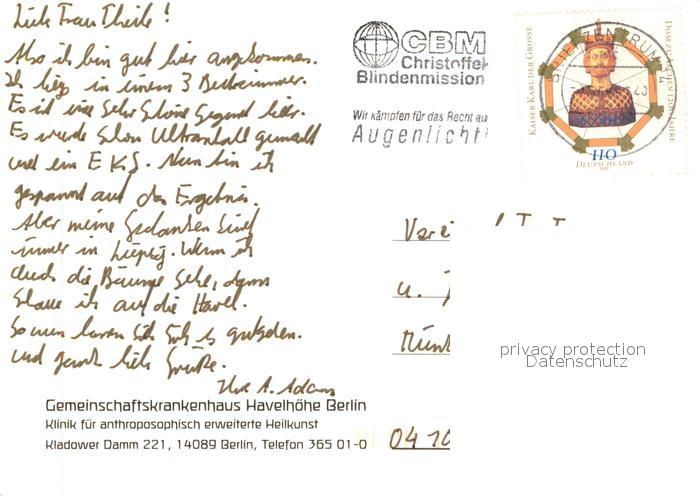 Liebe Frau Theile!
Also ich bin gut hier angekommen.
Ich lieg in einem 3 Bettzimmer.
Es ist eine sehr schöne Gegend hier.
Es wurde schon Ultraschall gemacht
und ein EKG. Nun bin ich
gespannt auf das Ergebnis.
Aber meine Gedanken sind
immer in Leipzig. Wenn ich
durch die Bäume sehe, dann
schaue ich auf die Havel.
So nun lassen Sie sich es gutgehen.
und ganz liebe Grüße.
A. Adam
Gemeinschaftskrankenhaus Havelhöhe Berlin
Klinik für anthroposophisch erweiterte Heilkunst
Kladower Damm 221, 14089 Berlin, Telefon 365 01-0
CBM
Christoffel
Blindenmission
Wir kämpfen für das Recht au
Augenlicht!
BRIEFZENTRUM
KAISER KARL DER GROSSE
DOM ZU AACHEN 1200 JAHRE
110
DEUTSCHLAND
u.
04
privacy protection
Datenschutz